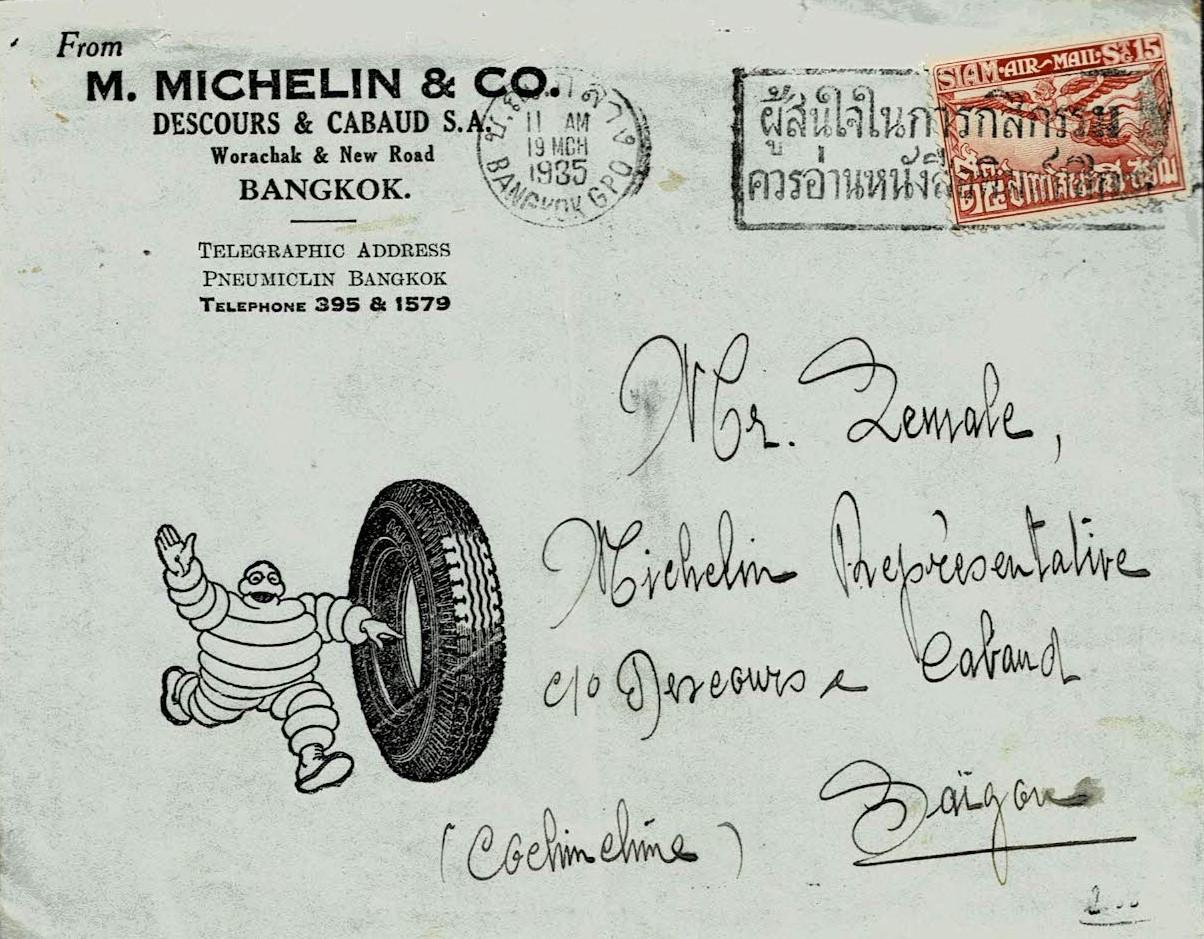 From
M. MICHELIN & CO.
DESCOURS & CABAUD S.A.
Worachak & New Road
BANGKOK.
TELEGRAPHIC ADDRESS
PNEUMICLIN BANGKOK
TELEPHONE 395 & 1579
11 AM
19 MCH
1935
BANGKOK GPO
ผู้สนใจในการกสิกรรม
ควรอ่านหนังสือ
SIAM·AIR-MAIL·STG 15
Mr. Lemale,
Michelin Représentative
c/o Descours & Cabaud
Saïgon
(Cochinchine)